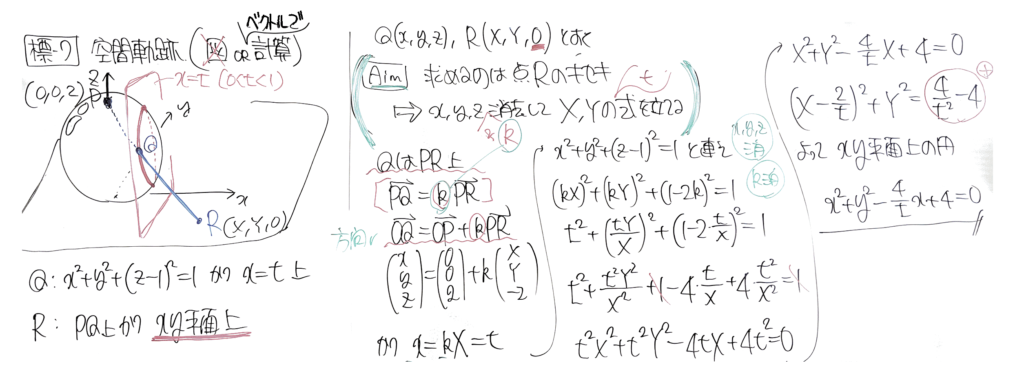 標-7 空間軌跡 (図 or 計算)
ベクトルで
x=t (0<t<1)
(0,0,2)
P
z
y
Q
x
R(X,Y,0)
Q: x²+y²+(z-1)²=1 かつ x=t 上
R: PQ上かつ xy平面上
Q(x,y,z), R(X,Y,0) とおく
Aim 求めるのは点Rのキセキ
t
⇒ x,y,z 消去して X,Yの式を立てる
k
QはPR上
PQ=kPR
OQ=OP+kPR
(x y z)=(0 0 2)+k(X Y -2)
かつ x=kX=t
x²+y²+(z-1)²=1 と連立
x,y,z消
(kX)²+(kY)²+(1-2k)²=1
k消
t²+(tY/X)²+(1-2·t/X)²=1
t²+t²Y²/X²+1-4·t/X+4·t²/X²=1
t²X²+t²Y²-4tX+4t²=0
X²+Y²-4/t X+4=0
(X-2/t)²+Y²=4/t²-4
⊕
よって xy平面上の円
x²+y²-4/t x+4=0